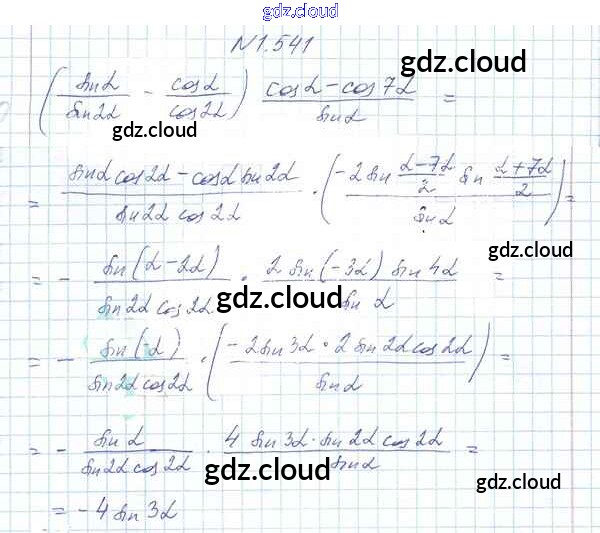 gdz.cloud
N 1.541
gdz.cloud
(sin α / sin 2α − cos α / cos 2α) (cos α − cos 7α) / sin α =
gdz.cloud
= (sin α cos 2α − cos α sin 2α) / (sin 2α cos 2α) · (−2 sin (α−7α)/2 sin (α+7α)/2 / sin α) =
gdz.cloud
= − sin(α−2α) / (sin 2α cos 2α) · 2 sin(−3α) sin 4α / sin α =
gdz.cloud
= − sin(−α) / (sin 2α cos 2α) · (−2 sin 3α · 2 sin 2α cos 2α / sin α) =
gdz.cloud
= − sin α / (sin 2α cos 2α) · 4 sin 3α · sin 2α cos 2α / sin α =
gdz.cloud
gdz.cloud
= −4 sin 3α